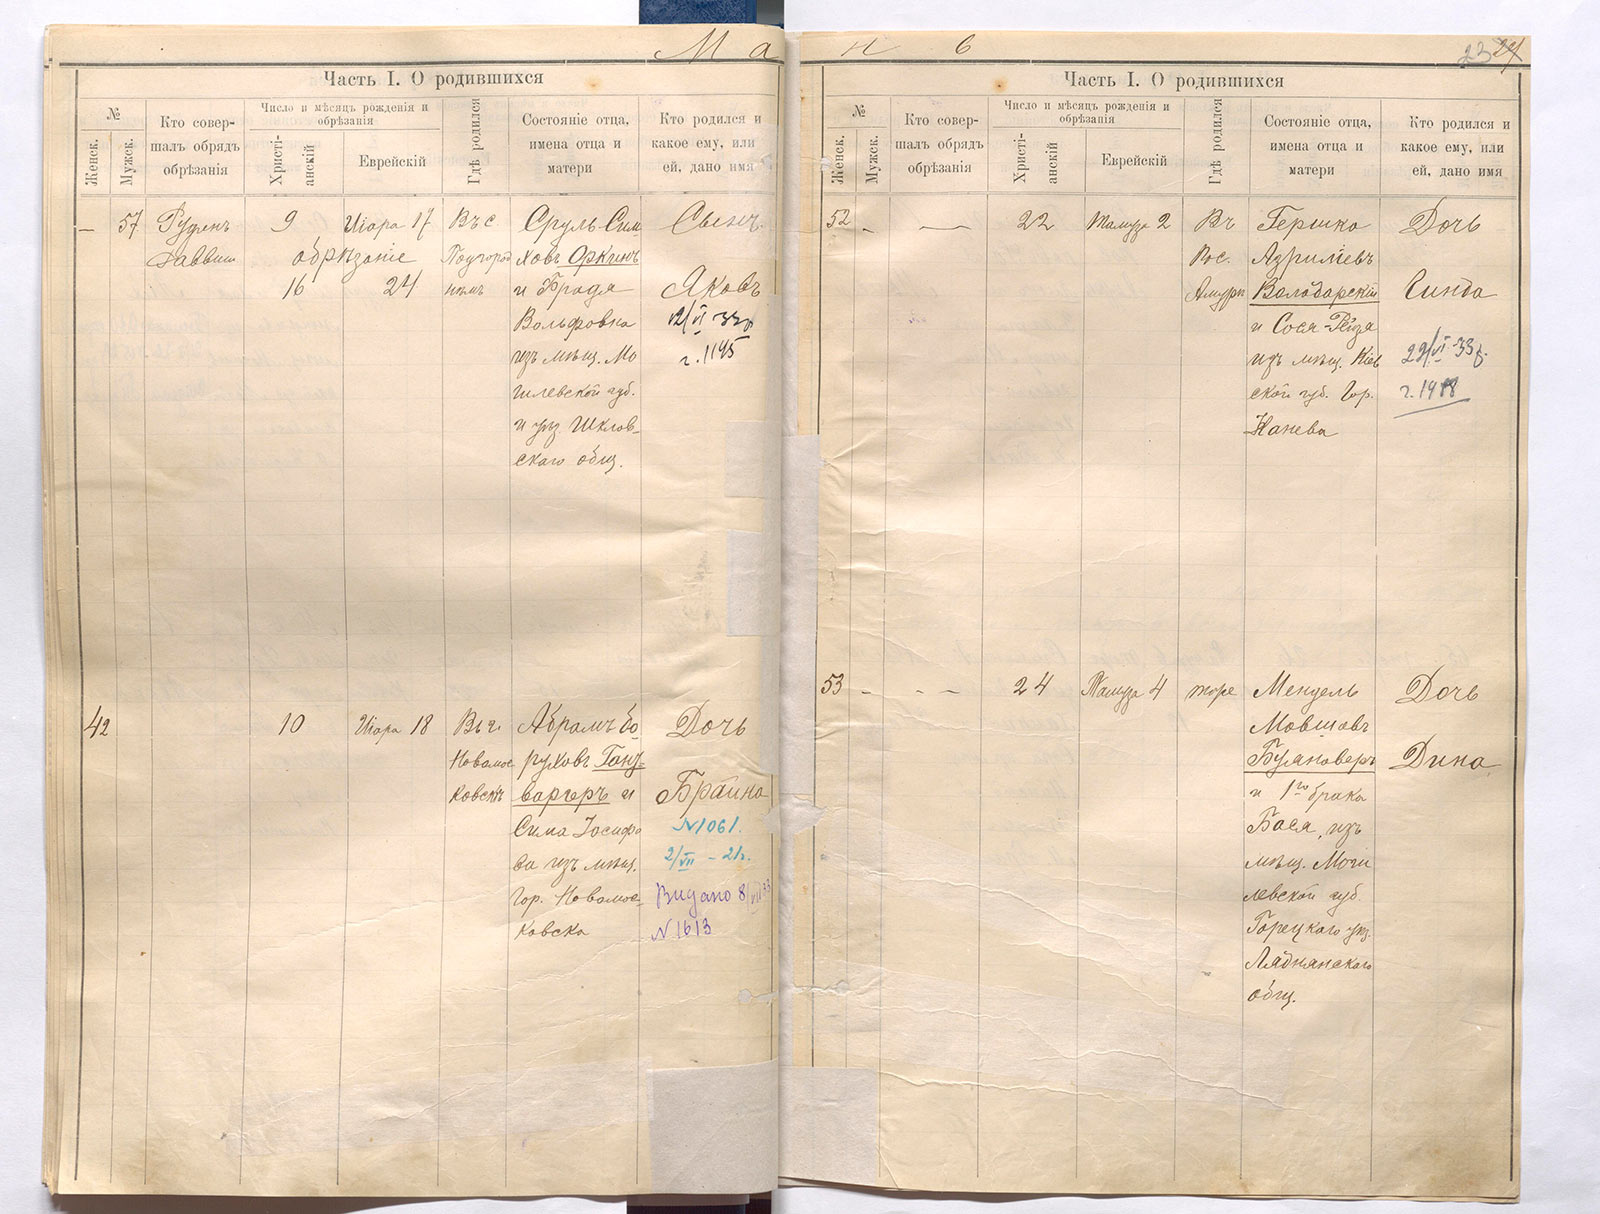 М а
Часть I. О родившихся
№
Женск.
Мужск.
Кто совер-
шалъ обрядъ
обрѣзанія
Число и мѣсяцъ рожденія и
обрѣзанія
Христі-
анскій
Еврейскій
Гдѣ родился
Состояніе отца,
имена отца и
матери
Кто родился и
какое ему, или
ей, дано имя
— 57
9
Иіара 17
обрѣзаніе
16 24
Въ с.
Подгород
Сруль Сим
ховъ Оркинъ
и Брада
Вольфовна
изъ мѣщ. Мо
гилевской губ.
и уѣз Шклов-
скаго общ.
Сынъ
Яковъ
12/VI 33
г. 1195
42
10
Иіара 18
Въ г.
Новомос
ковскѣ
Абрамъ Бо
руховъ
и
Сима Іосифо
ва изъ мѣщ.
Гор. Новомос-
ковска
Дочь
Браина
№ 1061.
2/VII - 21г.
Видано 8/VII
№ 1613
н ь
23
Часть I. О родившихся
№
Женск.
Мужск.
Кто совер-
шалъ обрядъ
обрѣзанія
Число и мѣсяцъ рожденія и
обрѣзанія
Христі-
анскій
Еврейскій
Гдѣ родился
Состояніе отца,
имена отца и
матери
Кто родился и
какое ему, или
ей, дано имя
52 - —
22
Тамуза 2
Въ
Пос.
Амурѣ
Гершко
Азриліевъ
Володарскій
и Сося-Рейза
изъ мѣщ. Кіев
ской губ. Гор.
Канева
Дочь
Синда
22/VI-33
53 - - -
24
Тамуза 4
тоже
Мендель
Мовшовъ
Буляноверъ
и 1го брака
Бася, изъ
мѣщ. Моги
левской губ.
Горецкаго уѣз.
Ляднянскаго
общ.
Дочь
Дина